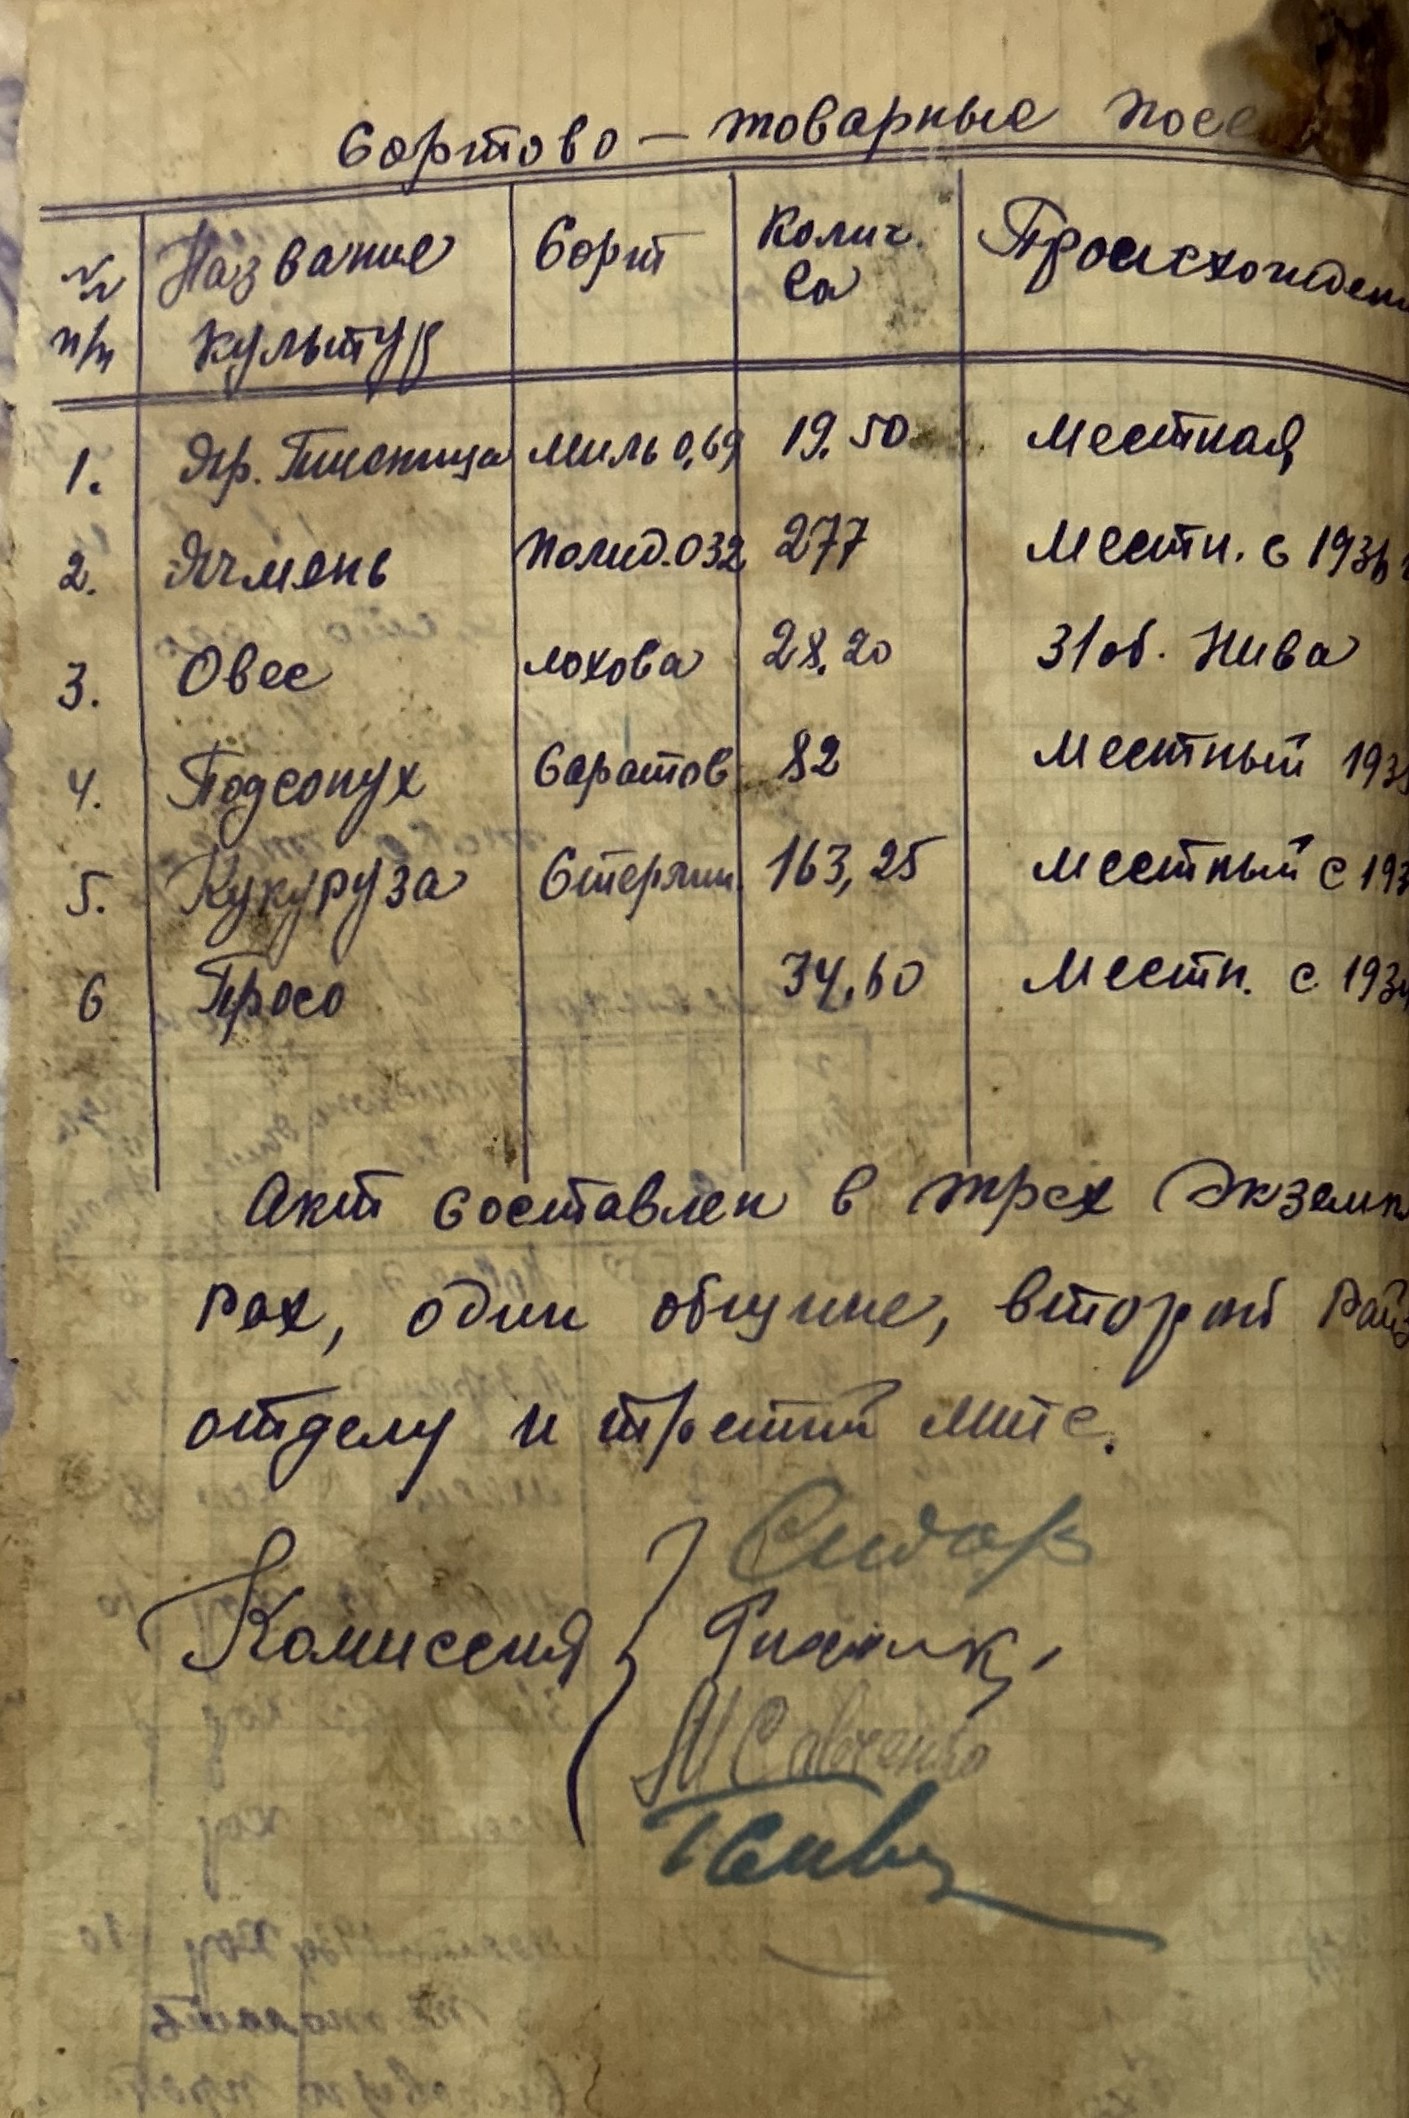 Сортово — товарные посе
№ п/п Название культур Сорт Колич. са Происхожден
1. Яр. Пшеница Мильо 0,69 19.50 Местная
2. Ячмень Полид. 032 277 Местн. с 193
3. Овес лохова 28.20 31 об. Нива
4. Подсолнух Саратов 82 Местный 193
5. Кукуруза Стерлин. 163,25 Местный с 193
6 Просо 34,60 Местн. с 193
Акт составлен в трех экземпл
рах, один общине, второй Рай
отделу и третий мтс.
Комиссия Сидор
М Савченко